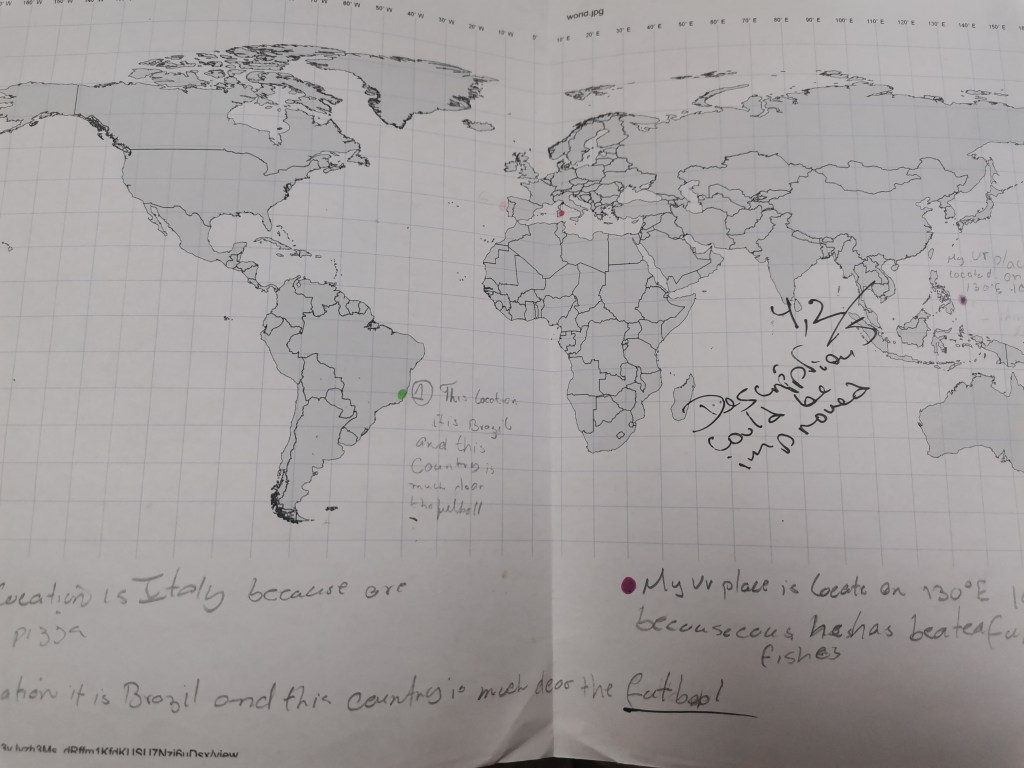 world.jpg
70° W 60° W 50° W 40° W 30° W 20° W 10° W 0° 10° E 20° E 30° E 40° E 50° E 60° E 70° E 80° E 90° E 100° E 110° E 120° E 130° E 140° E 150° E
My vr place
located on
130°E
① This Location
it is Brazil
and this
Country is
much
4,2
Description
could be
improved
Location is Italy because are
pizza
My vr place is locate on 130°E
has beateafu
fishes
ation it is Brazil and this country is much dear the futbool